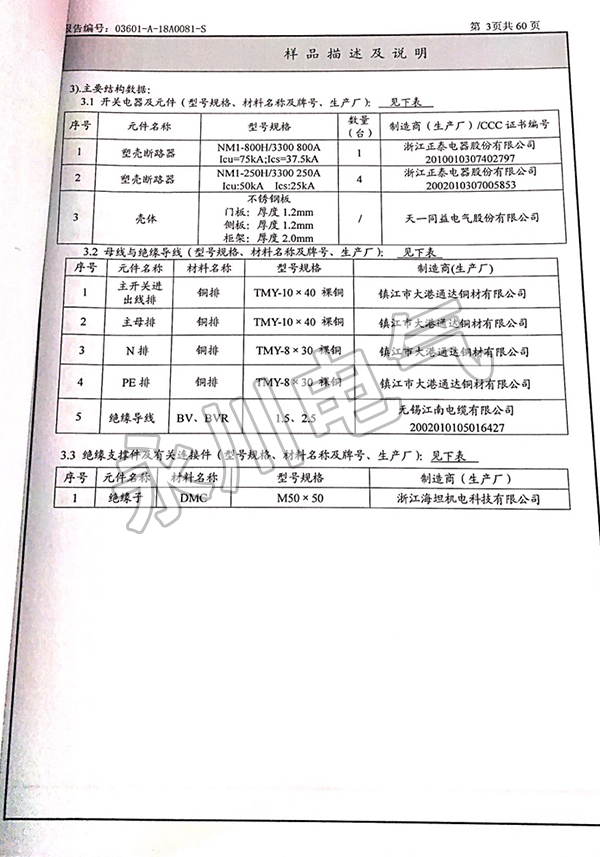 报告编号: 03601-A-18A0081-S 第 3页共 60 页
样品描述及说明
3).主要结构数据:
3.1 开关电器及元件（型号规格、材料名称及牌号、生产厂）: 见下表
序号 元件名称 型号规格 数量（台） 制造商（生产厂）/CCC 证书编号
1 塑壳断路器 NM1-800H/3300 800A 1 浙江正泰电器股份有限公司
Icu=75kA;Ics=37.5kA 2010010307402797
2 塑壳断路器 NM1-250H/3300 250A 4 浙江正泰电器股份有限公司
Icu:50kA Ics:25kA 2002010307005853
3 壳体 不锈钢板 / 天一同益电气股份有限公司
门板: 厚度 1.2mm
侧板: 厚度 1.2mm
柜架: 厚度 2.0mm
3.2 母线与绝缘导线（型号规格、材料名称及牌号、生产厂）: 见下表
序号 元件名称 材料名称 型号规格 制造商(生产厂)
1 主开关进出线排 铜排 TMY-10×40 裸铜 镇江市大港通达铜材有限公司
2 主母排 铜排 TMY-10×40 裸铜 镇江市大港通达铜材有限公司
3 N 排 铜排 TMY-8×30 裸铜 镇江市大港通达铜材有限公司
4 PE 排 铜排 TMY-8×30 裸铜 镇江市大港通达铜材有限公司
5 绝缘导线 BV、BVR 1.5、2.5 无锡江南电缆有限公司
2002010105016427
3.3 绝缘支撑件及有关连接件（型号规格、材料名称及牌号、生产厂）: 见下表
序号 元件名称 材料名称 型号规格 制造商（生产厂）
1 绝缘子 DMC M50×50 浙江海坦机电科技有限公司
永川电气